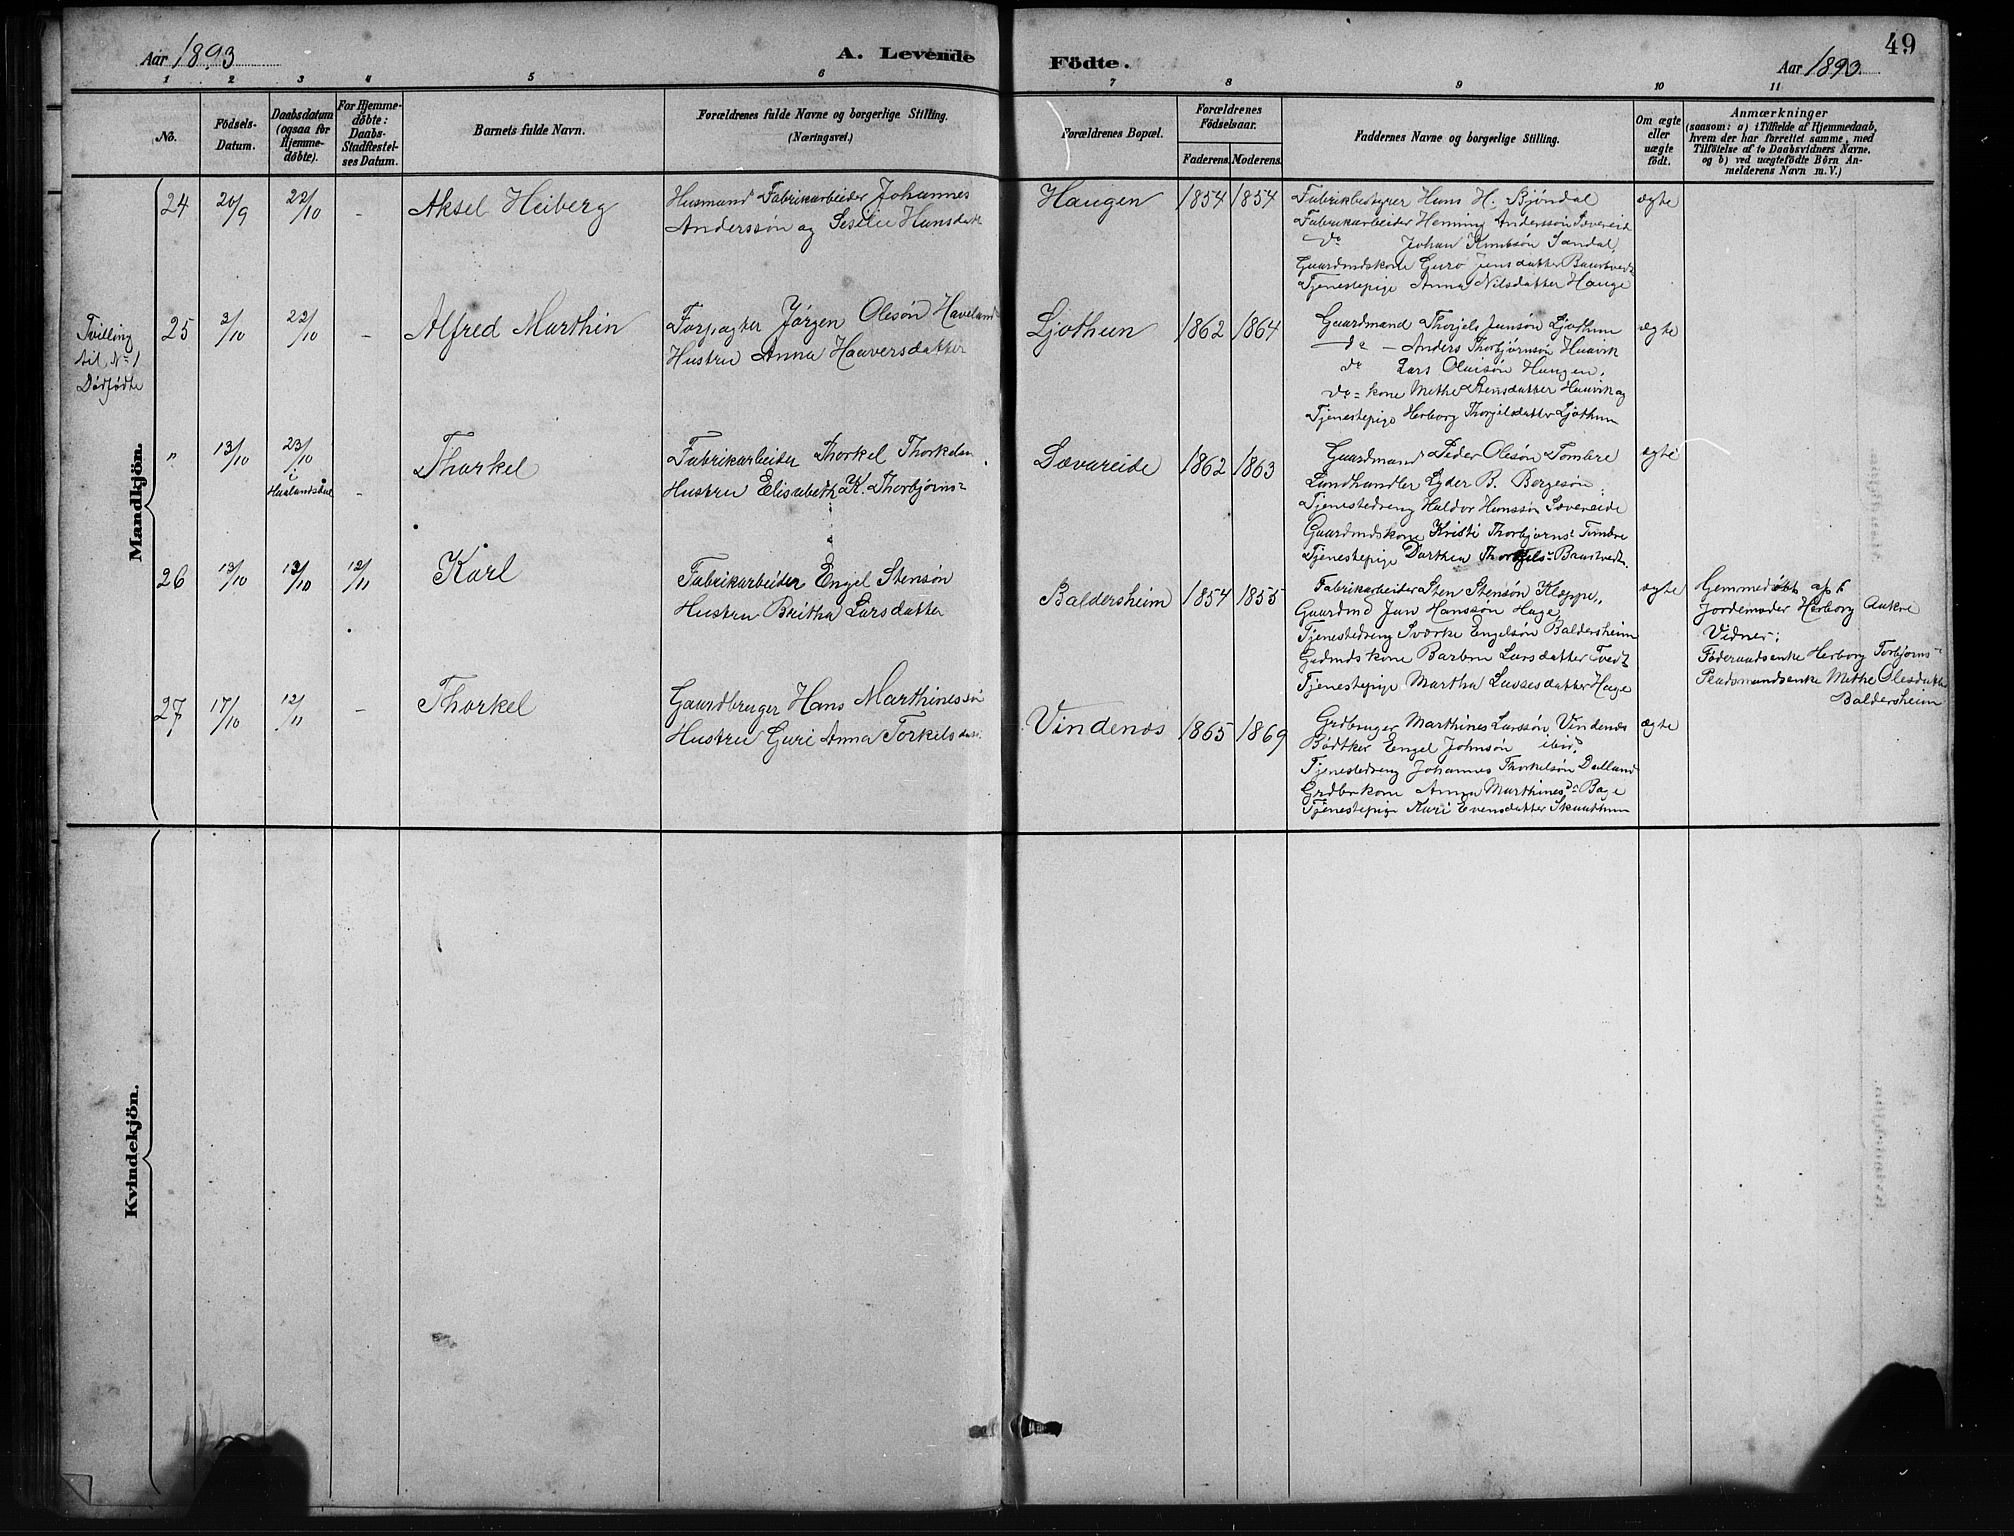 49
Aar 1893
A. Levende Födte.
Aar 1893
1 2 3 4 5 6 7 8 9 10 11
No.
Födsels-Datum.
Daabsdatum (ogsaa for Hjemme-döbte).
For Hjemme-döbte: Daabs-Stadfæstel-ses Datum.
Barnets fulde Navn.
Forældrenes fulde Navne og borgerlige Stilling.
(Næringsvei.)
Forældrenes Bopæl.
Forældrenes Födselsaar.
Faderens. Moderens.
Faddernes Navne og borgerlige Stilling.
Om ægte eller uægte födt.
Anmærkninger
(saasom: a) i Tilfælde af Hjemmedaab,
hvem der har forrettet samme, med
Tilföielse af to Daabsvidners Navne.
og b) ved uægtefödte Börn An-
melderens Navn m. V.)
Mandkjön.
24 20/9 22/10 - Aksel Heiberg
Husmand Fabrikarbeider Johannes
Anderssøn og Sesilie Hansdatt
Haugen 1854 1854
Fabrikbestyrer Hans H. Bjøndal
Fabrikarbeider Henning Anderssøn Sævereid
do Johan Knudsøn Sandal
Gaardmdskone Guro Jensdatter Baustvedt
Tjenestepige Anna Nilsdatter Hauge
ægte
Tvilling
til No 1
Dødfødte
25 3/10 22/10 - Alfred Marthin
Forpagter Jörgen Olesøn Haveland
Hustru Anna Haaversdatter
Ljothun 1862 1864
Gaardmand Thorjels Jansøn Ljothun
do - Anders Thorbjørnsøn Haavik
do Lars Oluisøn Haugen,
do = kone Methe Stensdatter Haavik og
Tjenestepige Herborg Thorjelsdatter Ljothun
ægte
" 13/10 23/10 i Haalandsdal - Thorkel
Fabrikarbeider Thorkel Thorkelsn
Hustru Elisabeth K. Thorbjørns=
Sævareide 1862 1863
Gaardmand Peder Olesøn Tombre
Landhandler Lyder B. Børgesøn
Tjenestedreng Haldor Hanssøn Sævereide
Gaardmdskone Kristi Thorbjørns= Tombre
Tjenestepige Dorthea Thorkels= Baustvedt
ægte
26 13/10 13/10 12/11 Karl
Fabrikarbeider Engel Stensøn
Hustru Britha Larsdatter
Baldersheim 1854 1855
Fabrikarbeider Sten Stensøn Kleppe,
Gaardmd Jan Hanssøn Hage
Tjenestedreng Sværke Engelsøn Baldersheim
Gadmdskone Barbru Larsdatter Tvedt
Tjenestepige Martha Lassesdatter Hage
ægte
Hjemmedøbt af
Jordemoder Herborg Aakre
Vidner:
Føderaadsenke Herborg Torbjørns=
Pladsmandsenke Methe Olesdatter
Baldersheim
27 17/10 12/11 - Thorkel
Gaardbruger Hans Marthinessøn
Hustru Guri Anna Torkelsdatt.
Vindenes 1865 1869
Grdbruger Marthines Larssøn Vindenes
Bødtker Engel Johnsøn ibid.
Tjenestedreng Johannes Thorkelsøn Dalland
Grdbrkone Anna Marthinesd= Bage
Tjenestepige Kari Evensdatter Skaathun
ægte
Kvindekjön.